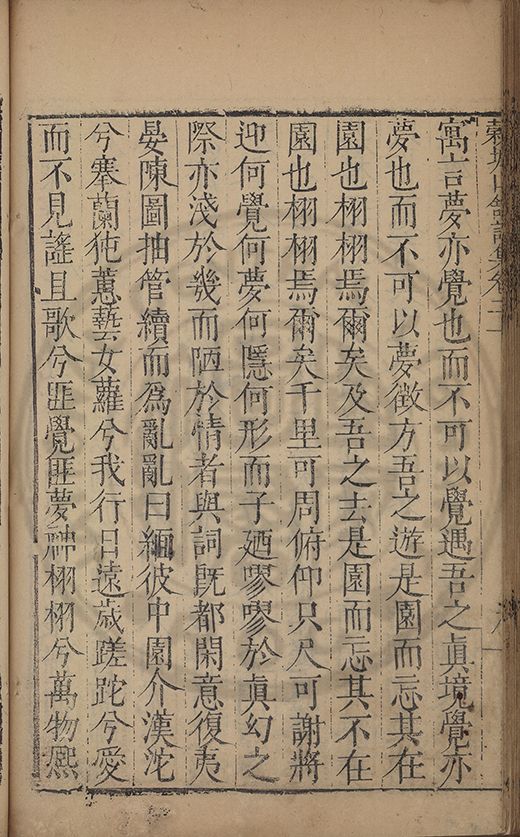 穀城山館詩集卷
寓言夢亦覺也而不可以覺遇吾之眞境覺亦
夢也而不可以夢徵方吾之遊是園而忘其在
園也栩栩焉爾矣及吾之去是園而忘其不在
園也栩栩焉爾矣千里可周俯仰只尺可謝將
迎何覺何夢何隱何形而子廼嘐嘐於眞幻之
際亦淺於幾而陋於情者與詞旣都閑意復夷
晏陳圖抽管續而爲亂亂曰緬彼中園介漢沱
兮搴蘭蕙藝女蘿兮我行日遠歲蹉跎兮愛
而不見謠且歌兮匪覺匪夢神栩栩兮萬物熙